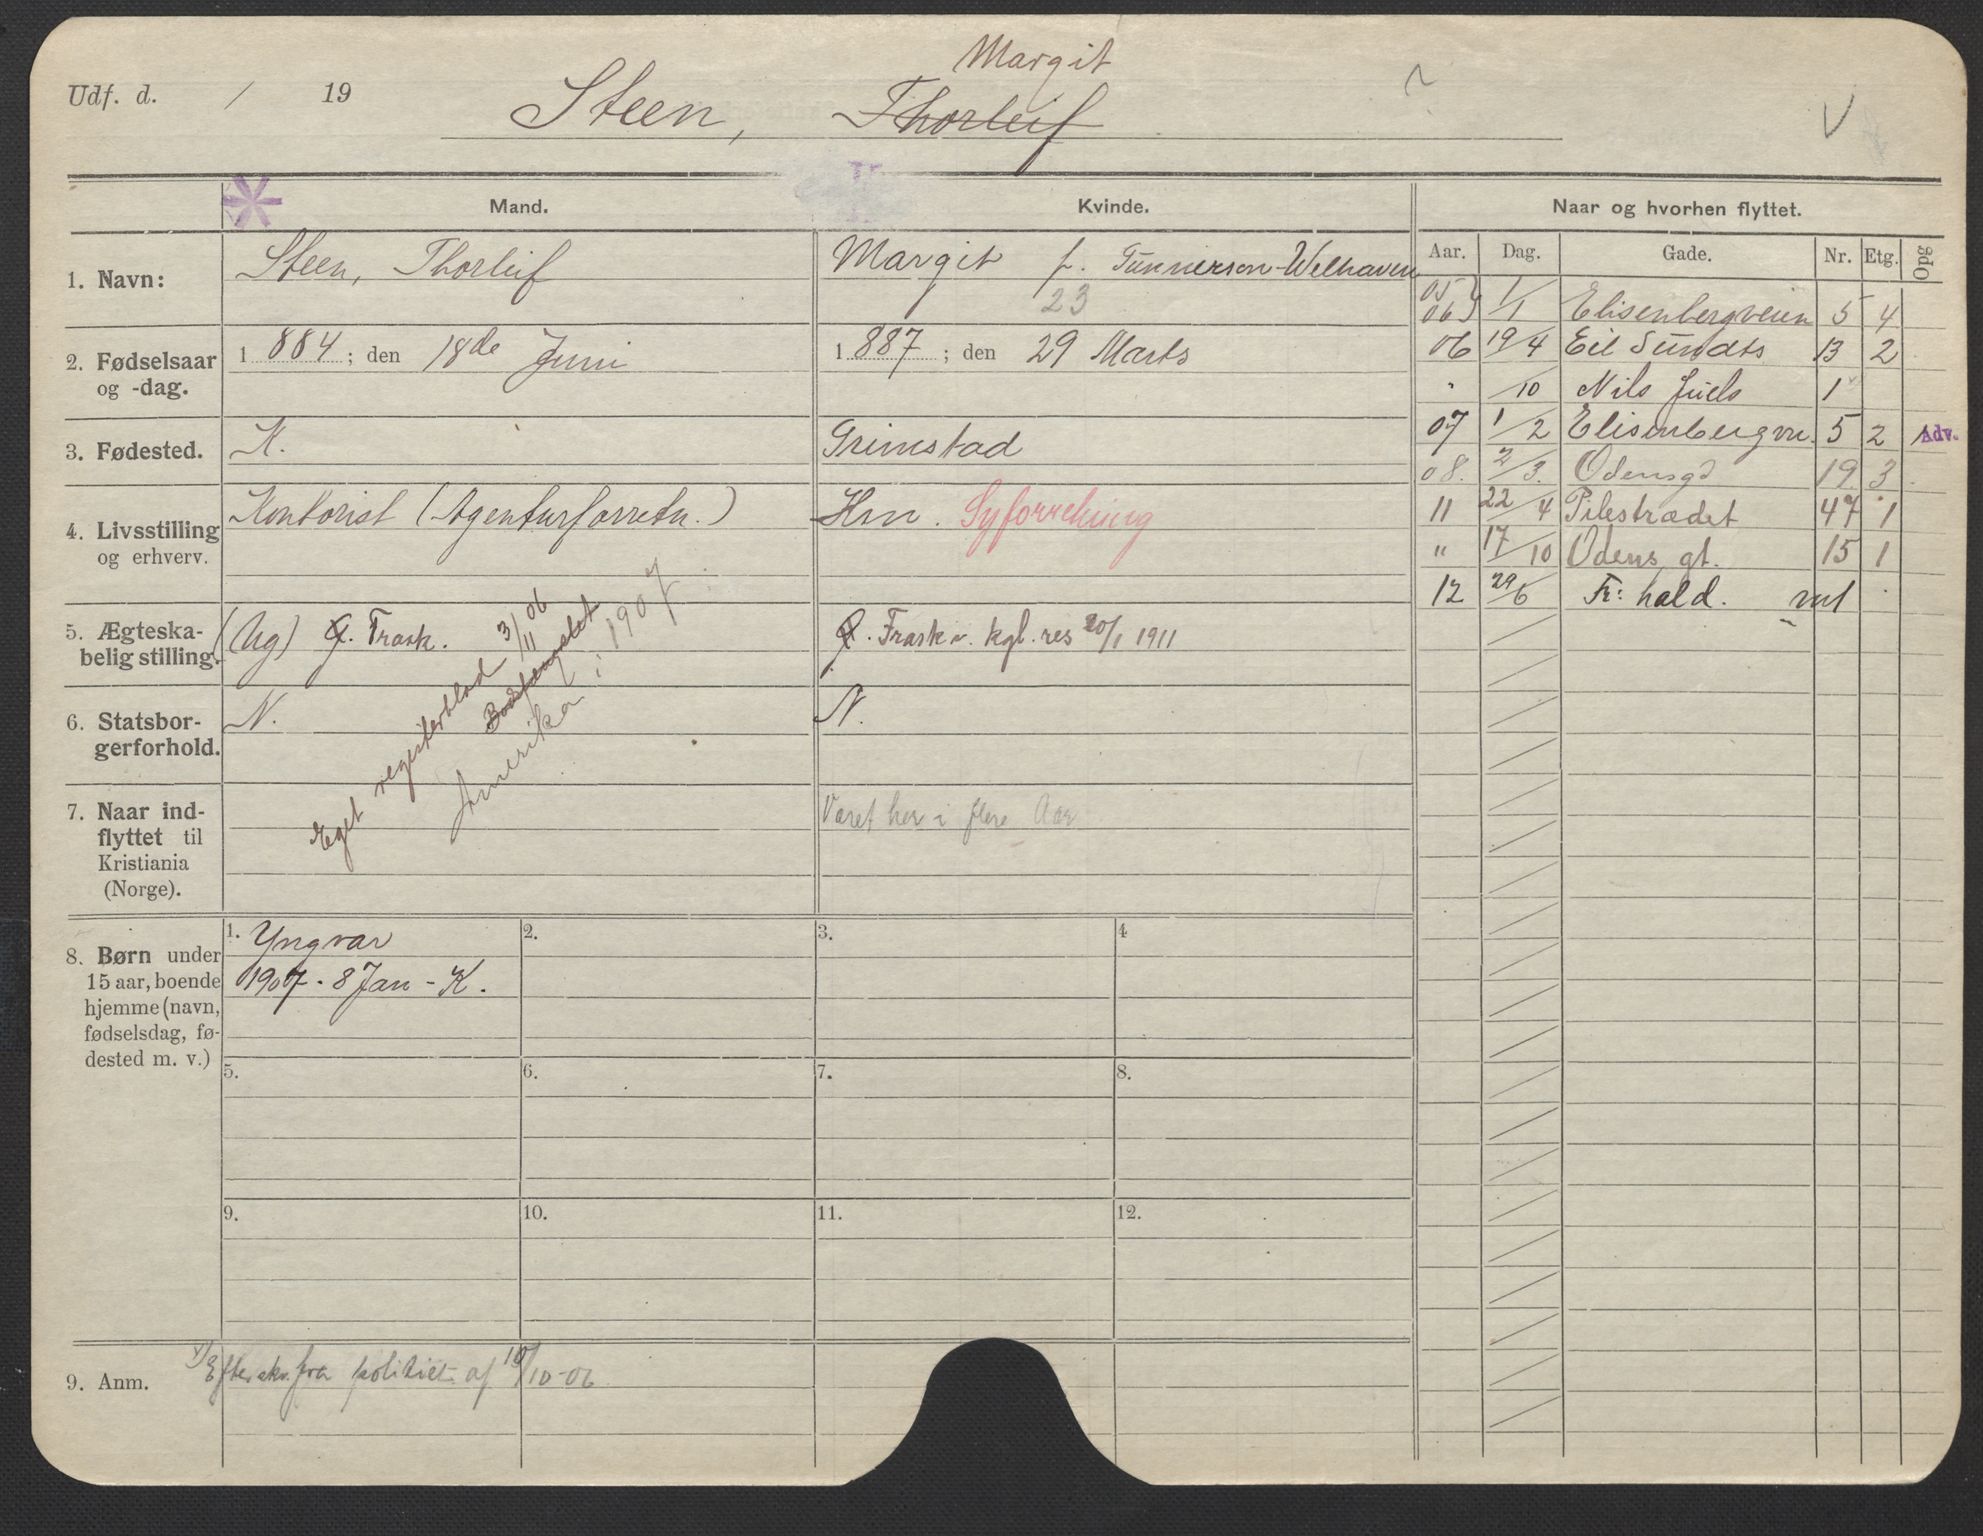 Margit
Udf. d. / 19 Steen, Thorleif
Mand. Kvinde. Naar og hvorhen flyttet.
Aar. Dag. Gade. Nr. Etg. Opg
1. Navn: Steen, Thorleif Margit f. Gunnerson-Welhaven
23
2. Fødselsaar og -dag. 1 884 ; den 18de Juni 1 887 ; den 29 Marts
3. Fødested. K. Grimstad
4. Livsstilling og erhverv. Kontorist (Agenturforretn.) Hm. Syforretning
5. Ægteska-
belig stilling. (Ug) G. Frask. G. Frask v. kgl. res 20/1 1911
6. Statsbor-
gerforhold. N. N.
Eget registerblad 3/11 06
Bodsfengslet
Amerika i 1907
7. Naar ind-
flyttet til
Kristiania
(Norge).
Været her i flere Aar
8. Børn under
15 aar, boende
hjemme (navn,
fødselsdag, fø-
dested m. v.)
1. Yngvar
1907 - 8 Jan - K.
2.
3.
4
5.
6.
7.
8.
9.
10.
11.
12.
9. Anm. Eftersk. fra politiet af 10/10-06
05
06 1/1 Elisenbergveien 5 4
06 19/4 Eil Sundts 13 2
" /10 Nils Juels 1
07 1/2 Elisenbergvn. 5 2 Adv.
08. 2/3 Odensgd 19 3
11 22/4 Pilestrædet 47 1
" 17/10 Odens gt. 15 1
12 29/6 Fr: hald. out